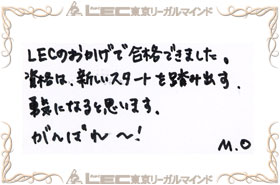 LEC東京リーガルマインド
LECのおかげで合格できました。
資格は、新しいスタートを踏み出す、
勇気になると思います。
がんばれ～!
M.O
LEC東京リーガルマインド